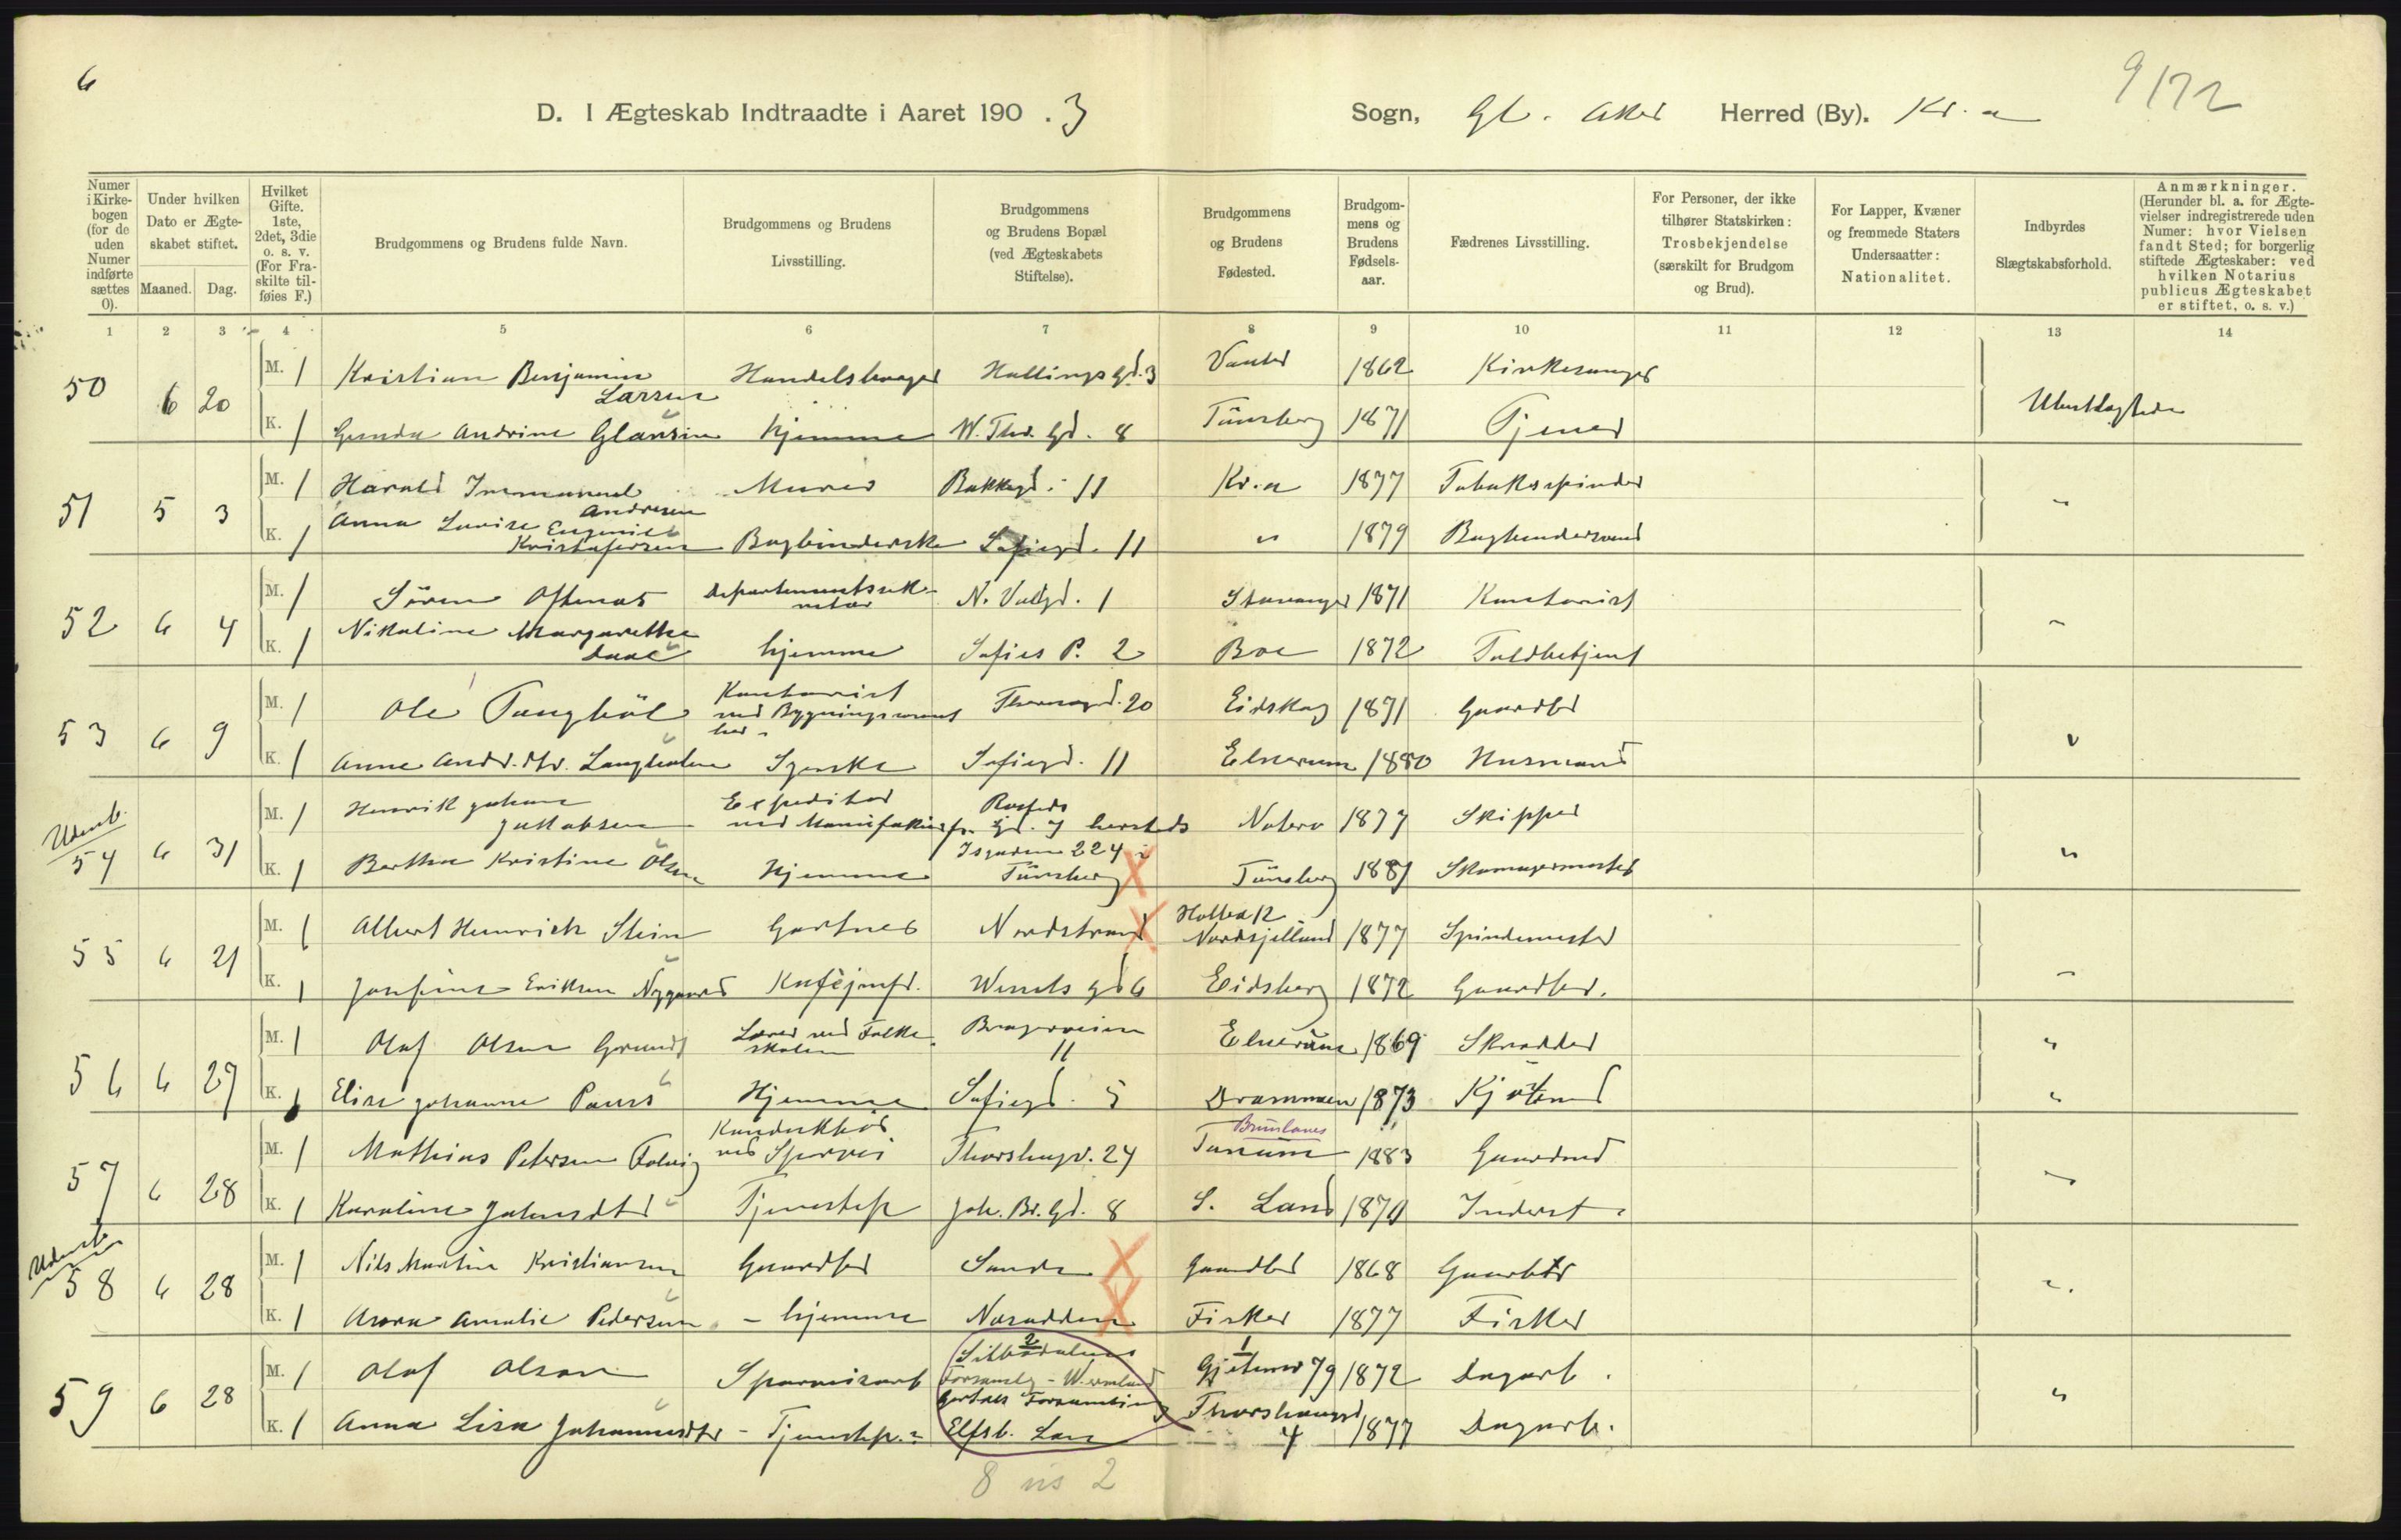 6
9172
D. I Ægteskab Indtraadte i Aaret 190 . 3 Sogn, Gl. Aker Herred (By). Kr.a
Numer i Kirkebogen (for de uden Numer indførte sættes 0).
Under hvilken Dato er Ægteskabet stiftet.
Maaned. Dag.
Hvilket Gifte. 1ste, 2det, 3die o. s. v. (For Fraskilte tilføies F.)
Brudgommens og Brudens fulde Navn.
Brudgommens og Brudens Livsstilling.
Brudgommens og Brudens Bopæl (ved Ægteskabets Stiftelse).
Brudgommens og Brudens Fødested.
Brudgommens og Brudens Fødselsaar.
Fædrenes Livsstilling.
For Personer, der ikke tilhører Statskirken: Trosbekjendelse (særskilt for Brudgom og Brud).
For Lapper, Kvæner og fremmede Staters Undersaatter: Nationalitet.
Indbyrdes Slægtskabsforhold.
Anmærkninger. (Herunder bl. a. for Ægtevielser indregistrerede uden Numer: hvor Vielsen fandt Sted; for borgerlig stiftede Ægteskaber: ved hvilken Notarius publicus Ægteskabet er stiftet, o. s. v.)
1 2 3 4 5 6 7 8 9 10 11 12 13 14
50 6 20
M. 1 Kristian Benjamin Larsen Hallings gd. 3 1862 Kirkesanger
K. 1 Gunda Andrine hjemme 8 Tünsberg 1871 Tjener
Ubeslægtede
51 5 3
M. 1 Harald Immanuel Andresen Murer Bakkegd. 11 Kr.a 1877 Tobaksspinder
K. 1 Anna Lovise Eugenie Kristofersen Bogbinderske Sofiegd. 11 " 1879 Bogbindersvend
"
52 6 4
M. 1 Sören Oftenæs Departementssekretær 1 Stavanger 1871 Kontorist
K. 1 Nikoline Margarethe hjemme Sofies P. 2 Boe 1872 Toldbetjent
"
53 6 9
M. 1 Ole Kontorist ved 20 Eidskog 1871 Gaardbr
K. 1 Anne Andr.dtr. Langholen Syerske Sofiegd. 11 Elverum 1880 Husmand
"
Udenb.
54 6 31
M. 1 Henrik Johan Jakobsen Expeditør ved gd. 7 Notero 1877 Skipper
K. 1 Berthe Kristine Olsen Hjemme 224 i Tünsberg Tünsberg 1881 Skomagermester
"
55 6 21
M. 1 Albert Heinrich Stein Gartner Nordstrand Nordsjelland 1877 Spindemester
K. 1 Josefine Eriksen Nygaard Kaféjomfr. Wessels gd 6 Eidsberg 1872 Gaardbr.
"
56 6 27
M. 1 Olaf Olsen Grundt Lærer ved Folkeskolen 11 Elverum 1869 Skrædder
K. 1 Elise Johanne Paus Hjemme Sofiegd. 5 Drammen 1873 Kjöbmd
"
"
57 6 28
M. 1 Mathias Petersen Konduktør ved Sporvei Thorshaugv. 24 Brunlanes Tanum 1883 Gaardmd
K. 1 Karoline Johnsdtr Tjenestep. Joh. Br. Gd. 8 S. Land 1870 Inderst
"
Udenb.
58 6 28
M. 1 Nils Martin Kristiansen Gaardbr Sande Gaardbr 1868 Gaardbr
K. 1 Amalie Pedersen - hjemme Nesodden Fisker 1877 Fisker
"
59 6 28
M. 1 Olof Olson Sporveisarb Silbodalens Forsaml. - Wermland 2 1 79 1872 Dagarb.
K. 1 Anna Lisa Johannesdtr - Tjenestep. Forsamling Elfsb. Län 4 1877 Dagarb.
"
8 2